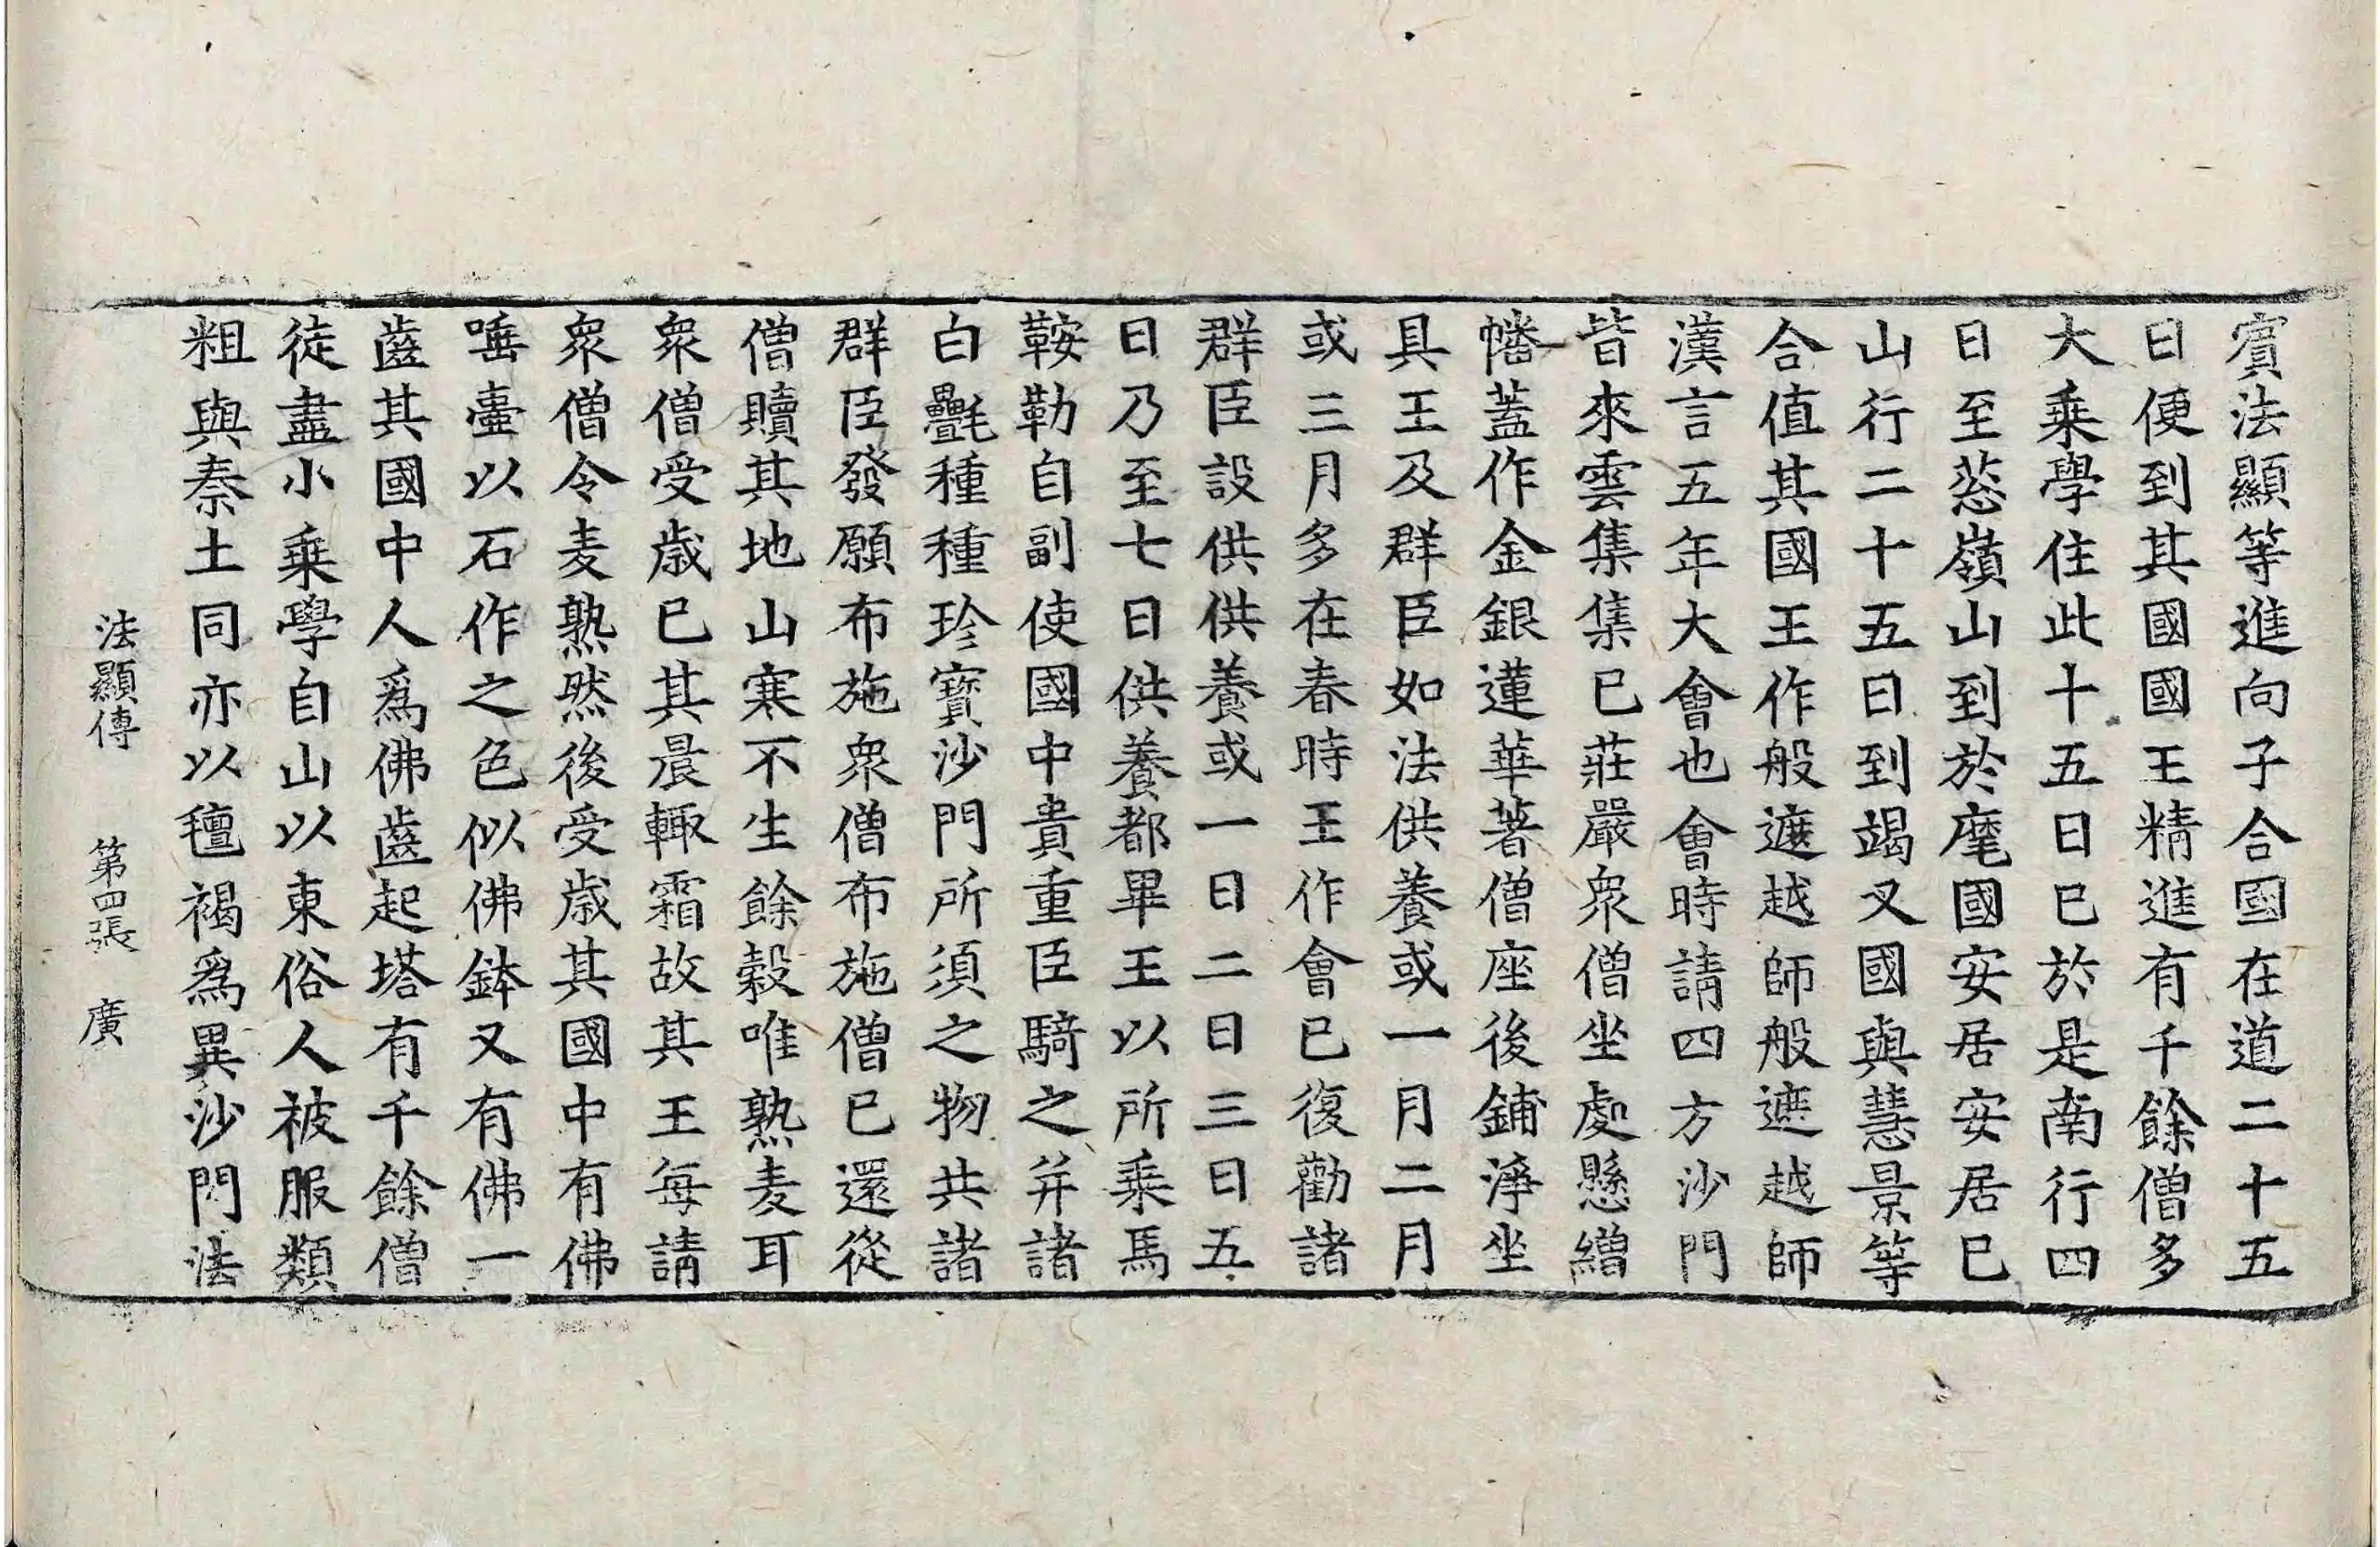 賓法顯等進向子合國在道二十五
日便到其國國王精進有千餘僧多
大乘學住此十五日已於是南行四
日至葱嶺山到於麾國安居安居已
山行二十五日到竭叉國與慧景等
合值其國王作般遮越師般遮越師
漢言五年大會也會時請四方沙門
皆來雲集集已莊嚴衆僧坐處懸繒
幡蓋作金銀蓮華著僧座後鋪淨坐
具王及群臣如法供養或一月二月
或三月多在春時王作會已復勸諸
群臣設供供養或一日二日三日五
日乃至七日供養都畢王以所乘馬
鞍勒自副使國中貴重臣騎之并諸
白㲲種種珍寶沙門所須之物共諸
群臣發願布施衆僧布施僧已還從
僧贖其地山寒不生餘穀唯熟麦耳
衆僧受歲已其晨輙霜故其王每請
衆僧令麦熟然後受歲其國中有佛
唾壷以石作之色似佛鉢又有佛一
齒其國中人爲佛齒起塔有千餘僧
徒盡小乘學自山以東俗人被服類
粗與秦土同亦以氊褐爲異沙門法
法顯傳 第四張 廣